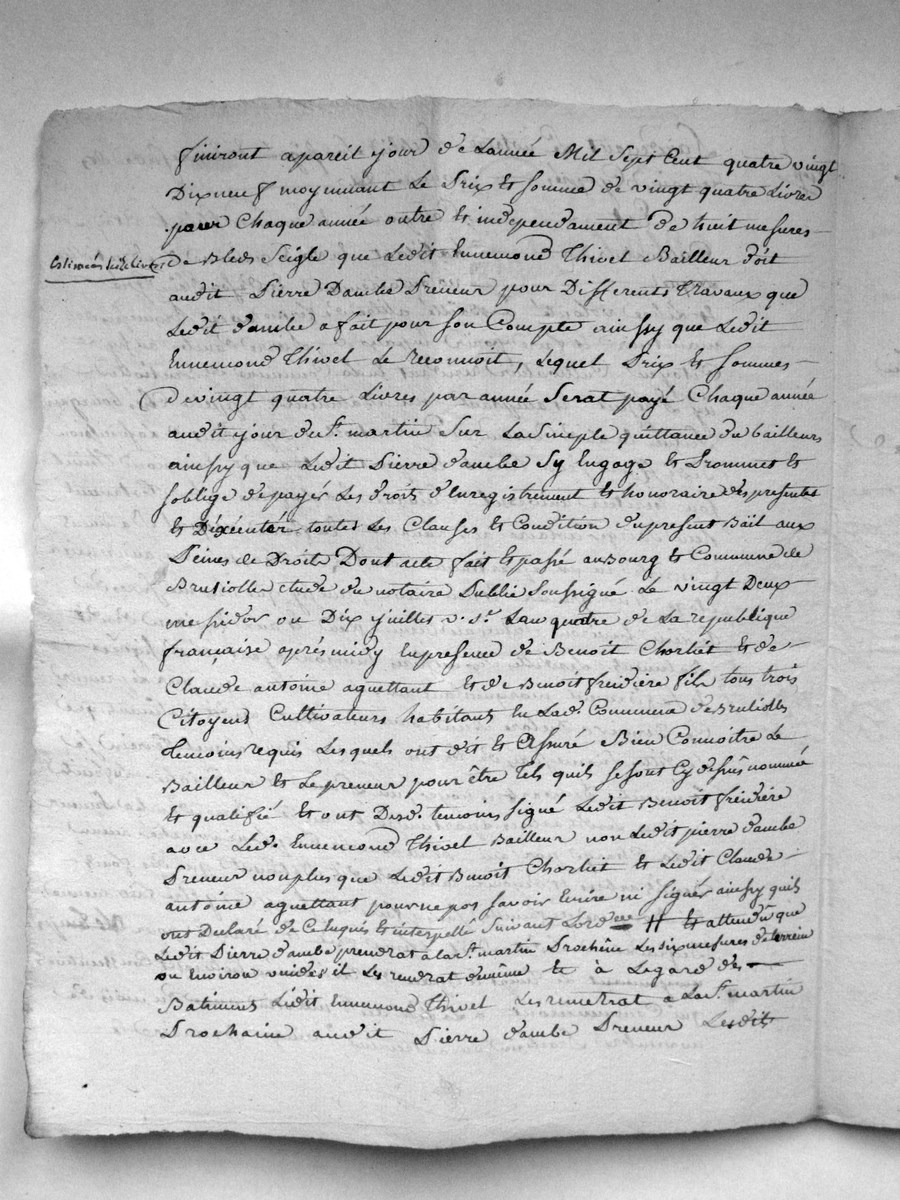 finiront a pareil jour de Lannée Mil Sept Cent quatre vingt
Dixneuf moyennant Le Prix et somme de vingt quatre Livres
pour Chaque année outre et independament de huit mesures
de Bleds Seigle que Ledit Ennemond Thivel Bailleur doit
audit Pierre Dambe Preneur pour Differents Travaux que
Ledit dambe a fait pour son Compte ainssy que Ledit
Ennemond Thivel Le reconnoit, Lequel Prix et sommes
devingt quatre Livres par année Serat payé Chaque année
audit jour de St. martin Sur La Simple quittance du bailleurs
ainssy que Ledit Pierre dambe Sy Engage et Prommet et
soblige de payér Les droits d'Enregistrement et honoraire des presentes
et Déxécutér toutes Les Clauses et Condition dupresent Bail aux
Peines de Droits, Dont acte fait et passé au Bourg et Commune de
Brusiolle etude du notaire Publie Soussigné Le vingt Deux
messidor ou Dix juilles v. st. Lan quatre de La republique
française aprés midy En presence de Benoit Charliet et de
Claude antoine aguettant et de Benoit freidiere fils tous trois
Citoyens Cultivateurs habitans En Lad. Commune de Brusiolles
Temoins requis Lesquels ont dit et assuré Bien Connoitre Le
Bailleur et Le preneur pour être Tels quils se sont Cy dessus nommé
et qualifié et ont Desd. temoins signé Ledit Benoit freidiere
avec Led. Ennemond Thivel Bailleur non Ledit pierre dambe
Preneur nonplus que Ledit Benoit Charliet et Ledit Claude
antoine aguettant pour ne pas savoir Ecrire ni signér ainssy quils
ont Declaré de Ce Requis et interpellé Suivant Lord et attendu que
Ledit Pierre dambe prendrat a La St. martin Prochaine Les dix mesures de terrein
ou Environ vuides il Les rendrat de même et à Legard des
Batimens Ledit Ennemond Thivel Les remetrat a La St. martin
Prochaine audit Pierre dambe Preneur Lesdits